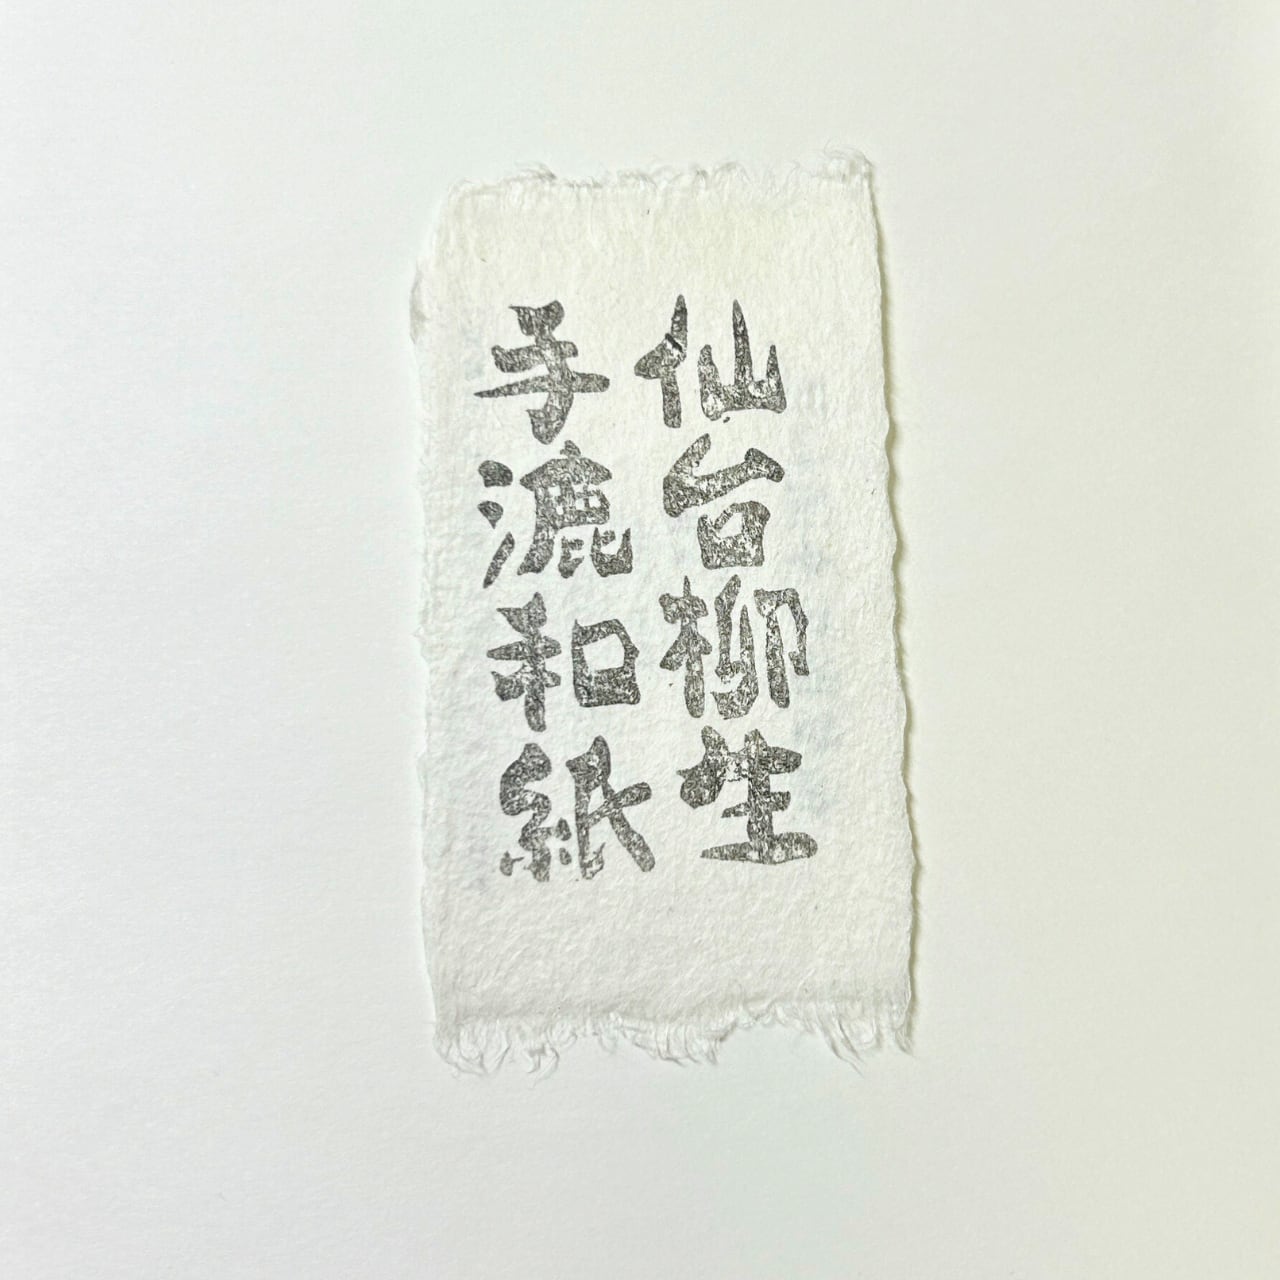 仙台柳生
手漉和紙